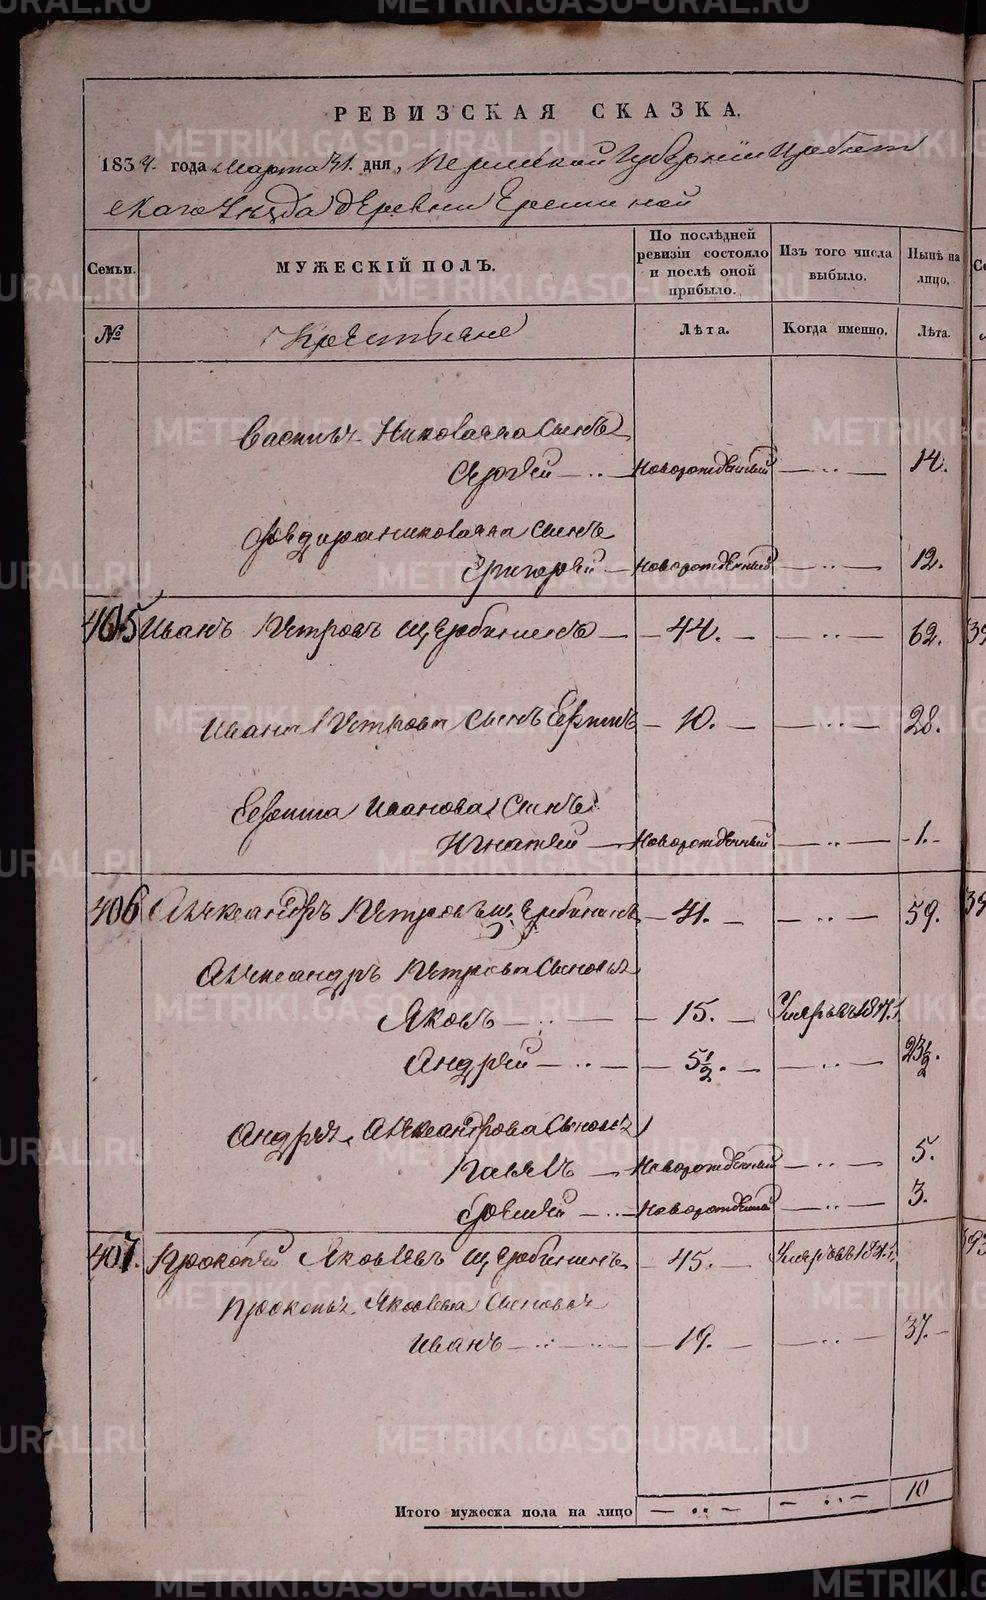 РЕВИЗСКАЯ СКАЗКА.
1834. года Марта 31. дня, Пермской Губернии Ирбит
скаго Уезда деревни Ереминой
Семьи. МУЖЕСКІЙ ПОЛЪ. По послѣдней ревизіи состояло и послѣ оной прибыло. Изъ того числа выбыло. Нынѣ на лицо.
№ Крестьяне Лѣта. Когда именно. Лѣта.
Василья Никоваева Сынъ
Сергѣй — Новорожденный — 14.
Григорей — Новорожденный — 12.
405 Иванъ Петровъ Щербининъ — 44. — 62.
Ивана Петрова Сынъ Ефимъ — 10. — 28.
Ефима Иванова Сынъ
Игнатей — Новорожденный — 1.
406 Александръ Петровъ Щербининъ — 41. — 59.
Александра Петрова Сыновья
Яковъ — 15. —
Андрей — 5½. — 23½.
Андрея Александрова Сыновья
Павелъ — Новорожденный — 5.
Новорожденный — 3.
407. Прокопей Яковлевъ Щербининъ — 45. —
Прокопья Яковлева Сыновья
Иванъ — 19. — 37.
Итого мужеска пола на лицо 10
METRIKI.GASO-URAL.RU